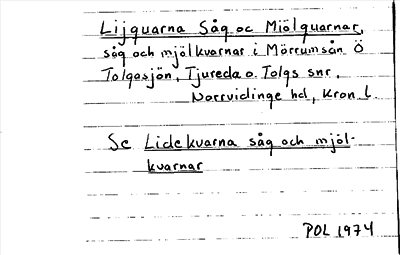 Lijquarna Såg oc Miölquarnar,
såg och mjölkvarnar i Mörrumsån Ö
Tolgasjön, Tjureda o. Tolgs snr,
Norrvidinge hd, Kron. l.
Se Lidekvarna såg och mjöl-
kvarnar
POL 1974